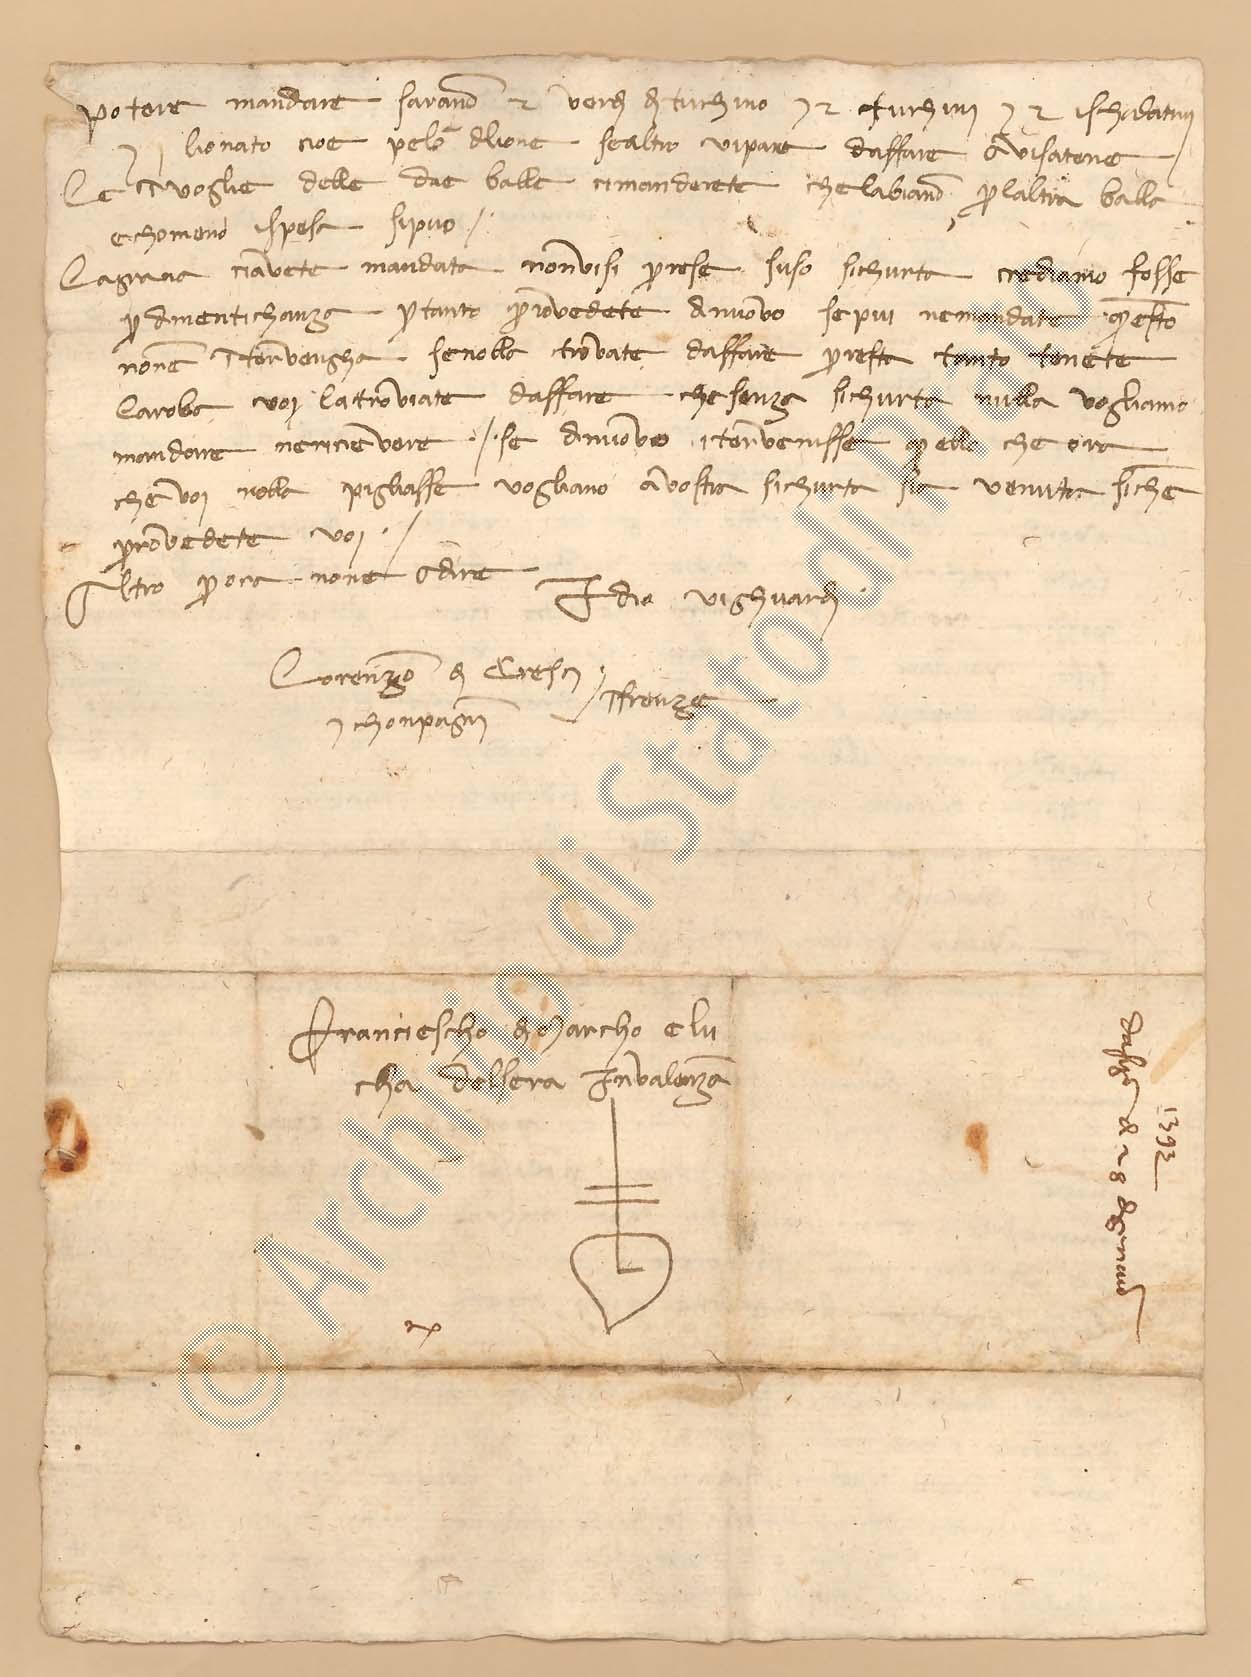 potere mandare sarano 2 verdi di turchino 7 2 turchini 7 2 ischarlattini
7 1 lionato cioe pelo dlione se altro vi pare daffare avisatene
Le invoglie delle due balle ci manderete che labiano p laltra balla
e cho meno ispesa si puo /.
La grana ciavete mandata non vi si prese suso sichurta crediamo fosse
p dimentichanza ptanto provedete di nuovo se piu ne mandate questo
none intervengha se nolla trovate daffare presta tanto tenete
la roba voi la troviate daffare che senza sichurta nulla vogliamo
mandare ne ricievere /. se di nuovo intervenisse quello che ora
che voi nolla pigliasse vogliano a vostra sichurta sia venuta siche
provedete voi /
Altro p ora none a dire Idio vi ghuardi
Lorenzo di Cresci
7 chonpagni in Firenze
Franciescho di Marcho e Lu
cha del Sera in Valenza
1392
da Firenze di 28 di gennaio
© Archivio di Stato di Prato